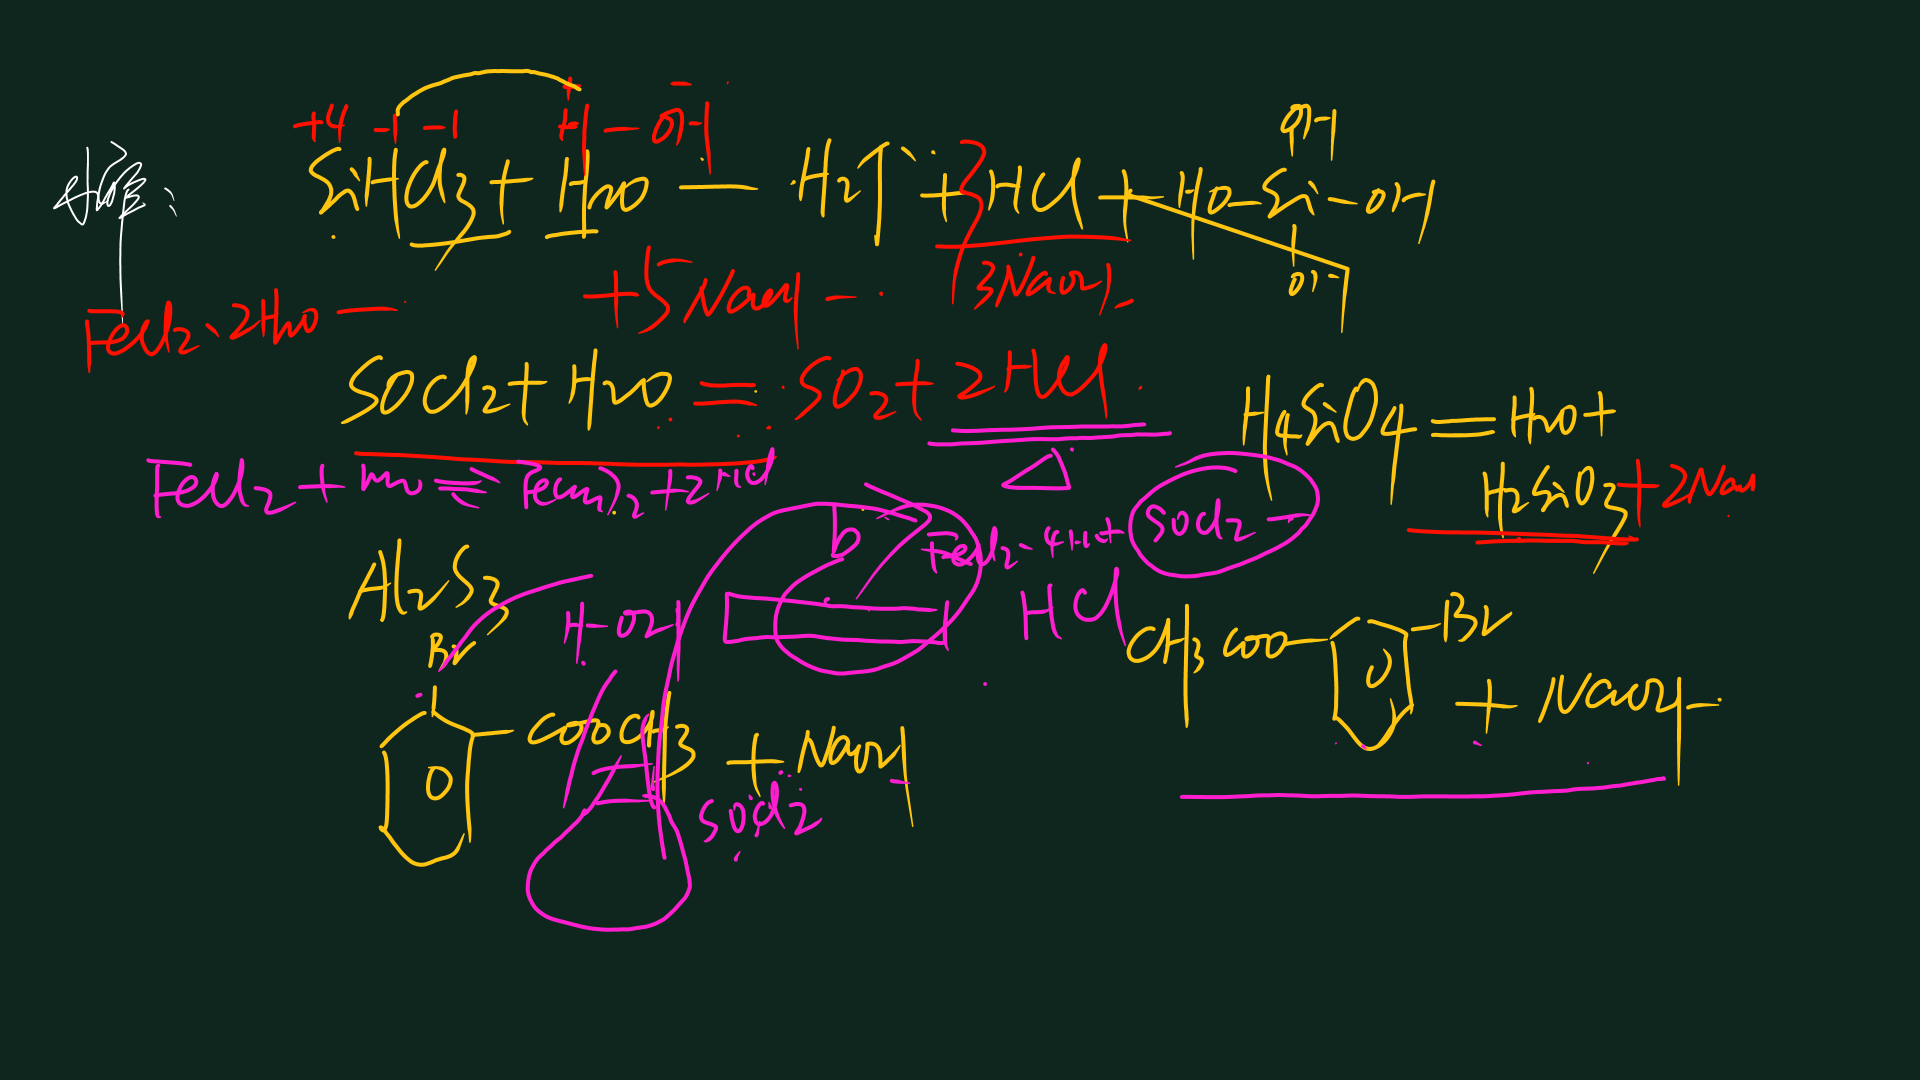 +4 -1 -1 H - OH
水解:
SiHCl3 + H2O — H2↑ + 3HCl + HO-Si-OH
OH
OH
+5NaOH - 3NaOH
FeCl2·2H2O —
SOCl2 + H2O = SO2 + 2HCl
H4SiO4 = H2O +
H2SiO3 + 2NaOH
FeCl2 + H2O ⇌ Fe(OH)2 + 2HCl
△
b
FeCl2·4H2O + SOCl2 —
Al2S3
H-OH
HCl
Br
CH3COO- -Br
COOCH3 + NaOH
+ NaOH -
SOCl2